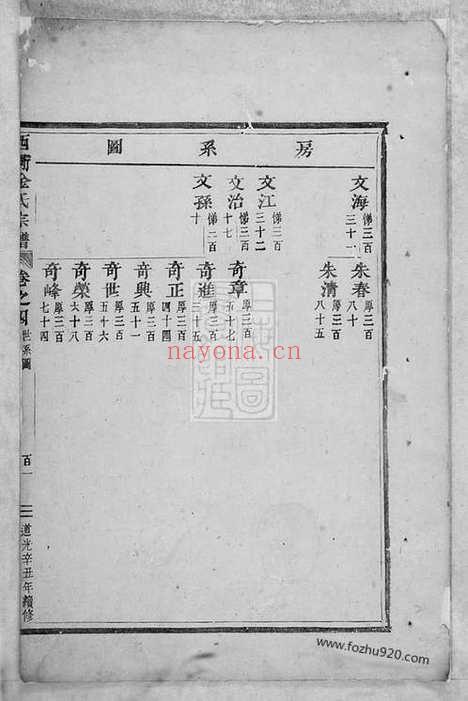 房系圖
文海 悌三百三十一
朱春 厚三百八十
朱清 厚三百八十五
文江 悌三百三十二
文治 悌三百十七
奇章 厚三百五十七
文孫 悌二百十
奇進 厚三百三十五
奇正 厚三百四十四
奇興 厚三百五十一
奇世 厚三百五十六
奇榮 厚三百六十八
奇峰 厚三百七十四
金氏宗譜 卷之四 世系圖 百一 道光辛丑年續修
nayona.cn
www.fozhu920.com